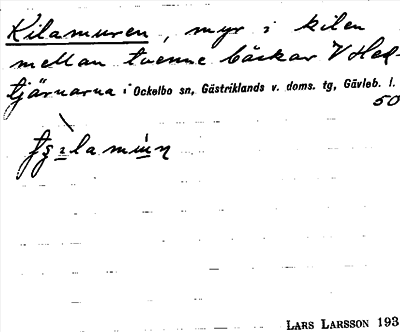 Kilamuren, myr i kilen
mellan tvenne bäckar V Hel-
tjärnarna i Ockelbo sn, Gästriklands v. doms. tg, Gävleb. l.
50
LARS LARSSON 193